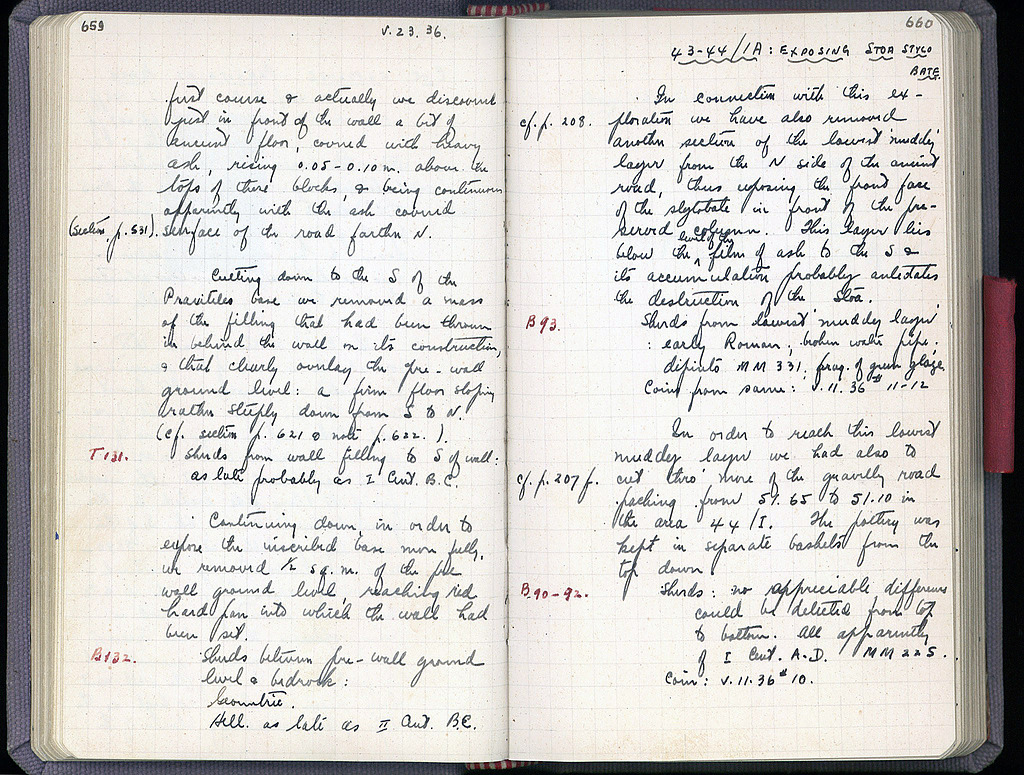 659
V. 23. 36.
first course & actually we discovered
just in front of the wall a bit of
ancient floor, covered with heavy
ash, rising 0.05-0.10 m. above the
tops of these blocks, & being continuous
apparently with the ash covered
(Section p. 531). surface of the road farther N.
Cutting down to the S of the
Praxiteles base we removed a mass
of the filling that had been thrown
in behind the wall on its construction,
& that clearly overlay the pre-wall
ground level: a firm floor sloping
rather steeply down from S to N.
(cf. section p. 621 & note p. 622.).
T 131. Sherds from wall filling to S of wall:
as late probably as I Cent. B.C.
Continuing down, in order to
expose the inscribed base more fully,
we removed 1/2 sq. m. of the pre
wall ground level, reaching red
hard pan into which the wall had
been set.
B 132. Sherds between pre-wall ground
level & bedrock:
Geometric.
Hell. as late as II Cent. B.C.
660
43-44/IA: EXPOSING STOA STYLO
BATE
In connection with this ex-
cf. p. 208. ploration we have also removed
another section of the lowest 'muddy'
layer from the N side of the ancient
road, thus exposing the front face
of the stylobate in front of the pre-
served column. This layer lies
below the level of the film of ash to the S &
its accumulation probably antedates
the destruction of the Stoa.
B 93. Sherds from lowest 'muddy layer'
: early Roman, broken water pipe.
dipinto MM 331, frag. of green glaze,
Coins from same: V. 11. 36 # 11-12
In order to reach this lowest
muddy layer we had also to
cf. p. 207 f. cut thro' more of the gravelly road
packing from 51.65 to 51.10 in
the area 44/I. The pottery was
kept in separate baskets from the
top down
B 90-92. Sherds: no appreciable difference
could be detected from top
to bottom. All apparently
of I Cent. A.D. MM 225.
Coin: V. 11. 36 # 10.